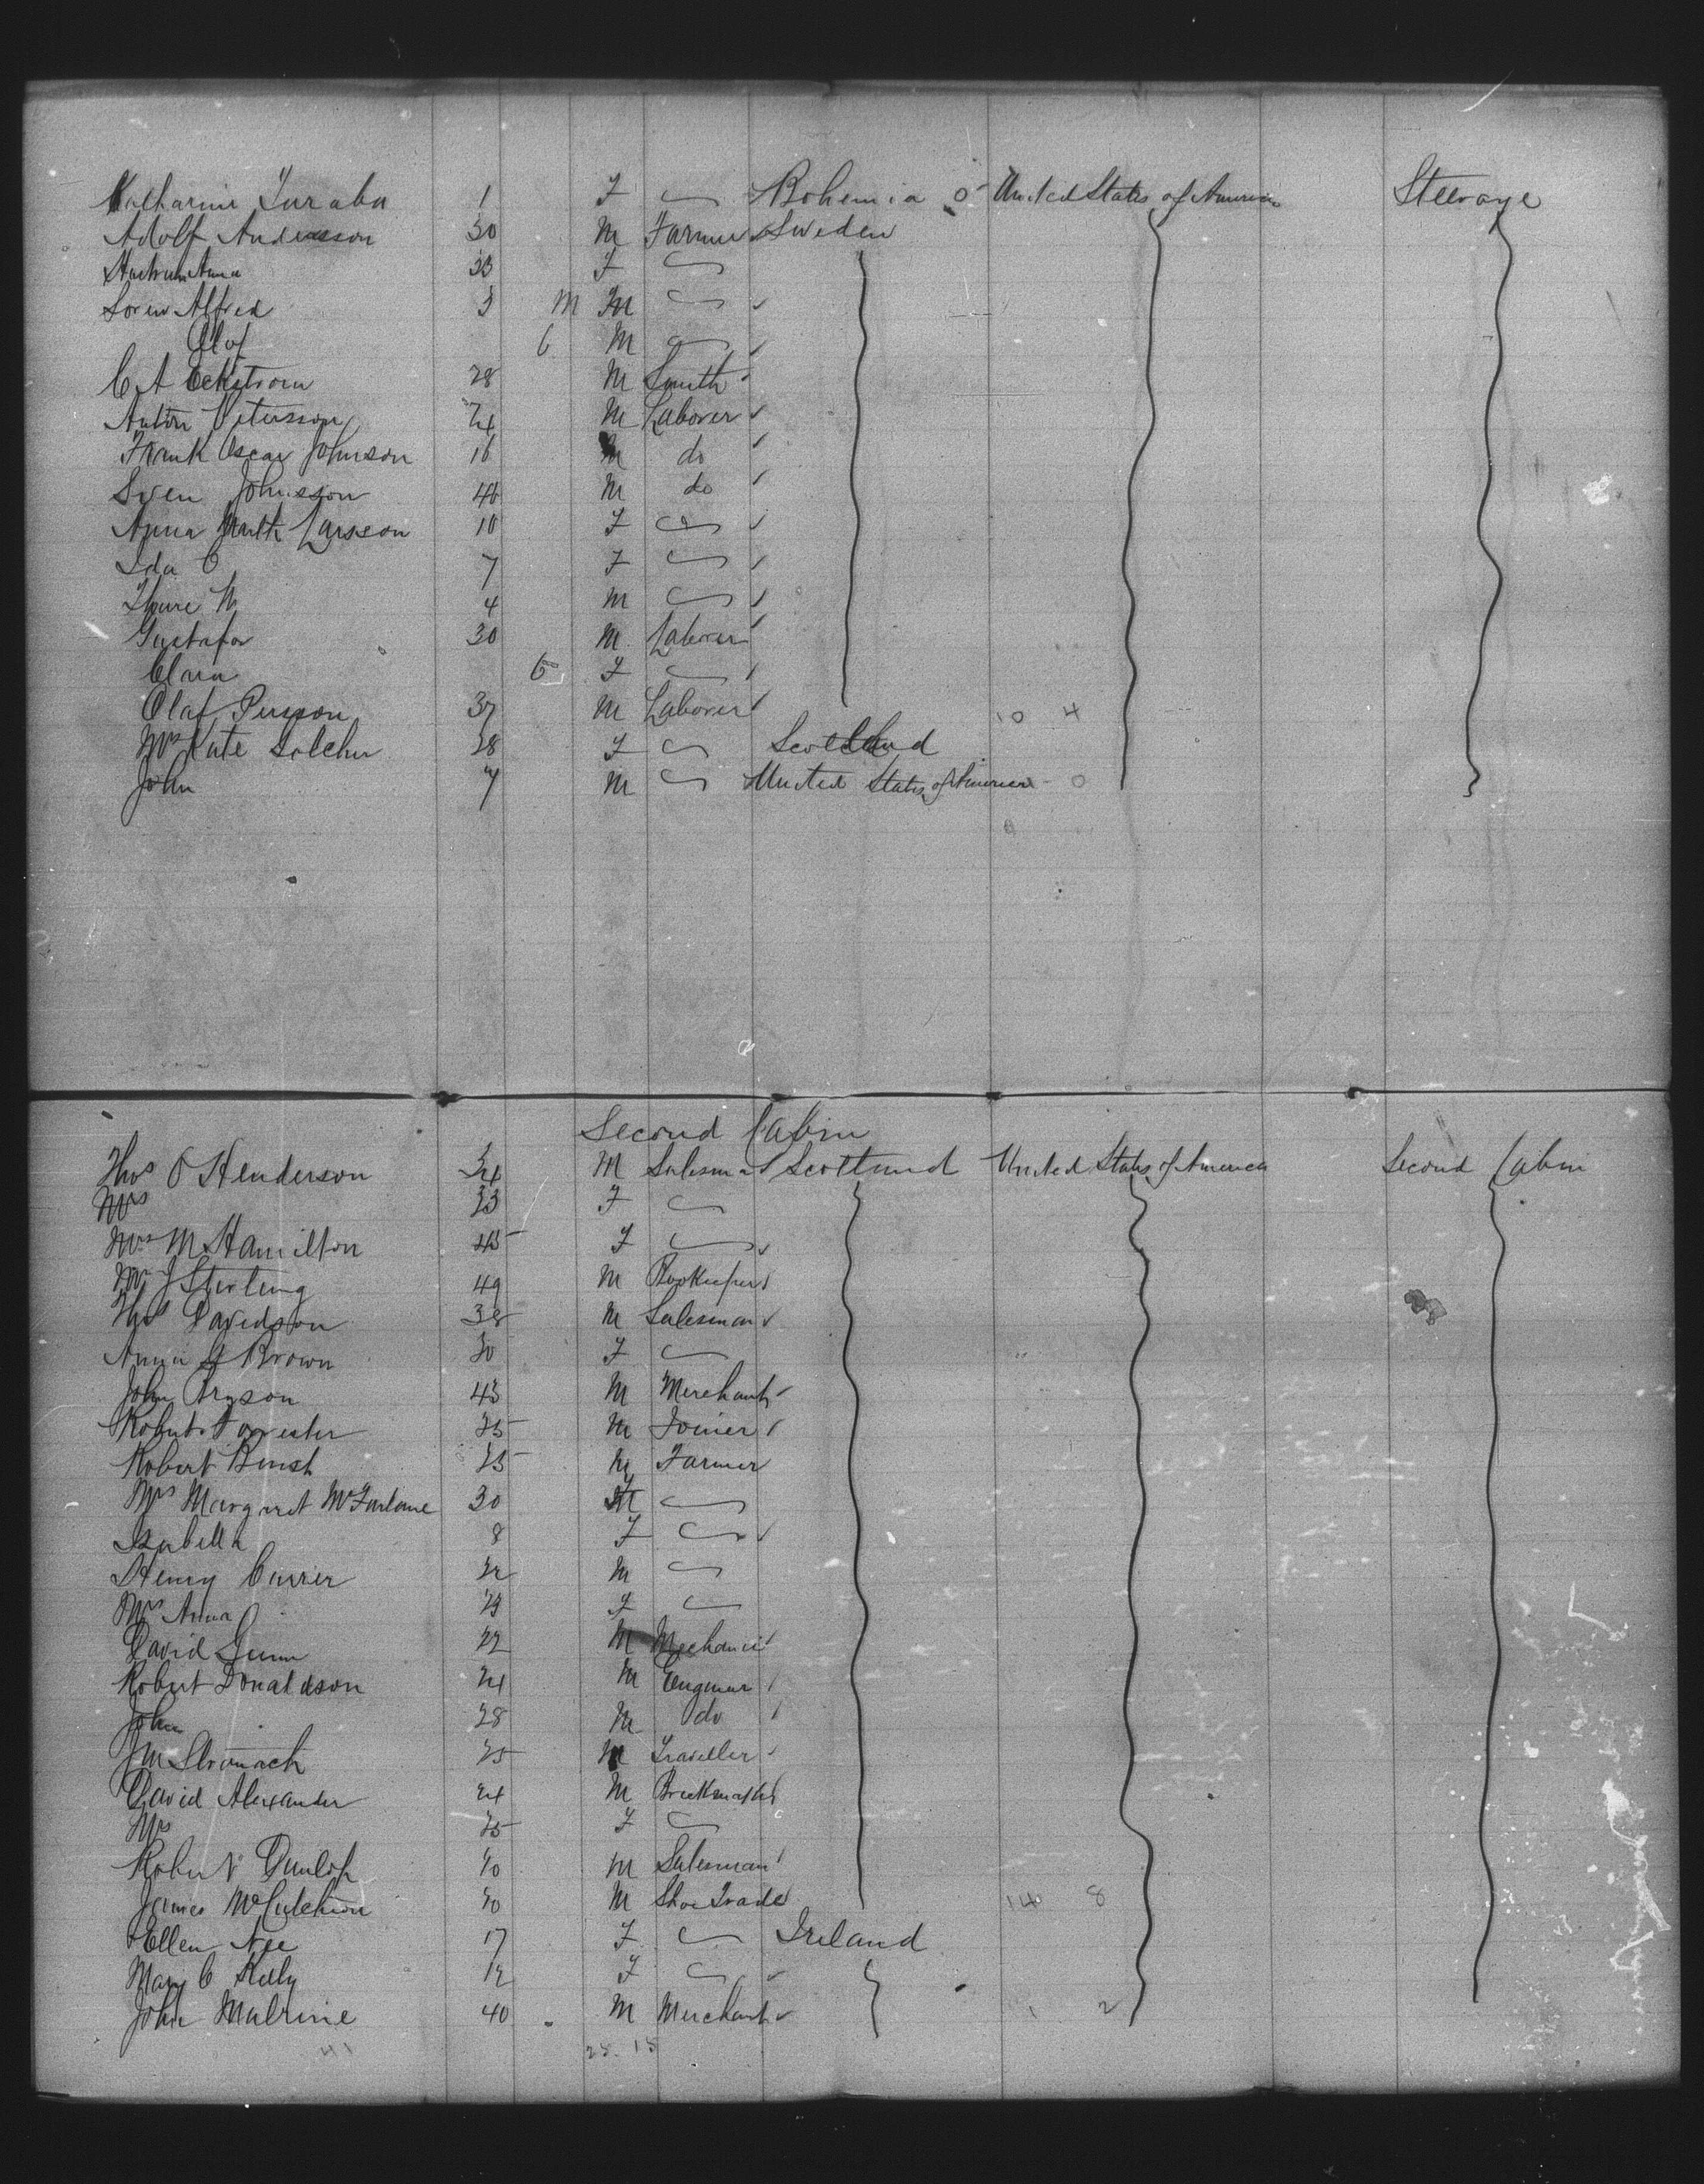 Katharina Juraba 1 F Bohemia 0 United States of America Steerage
Adolf Andersson 30 M Farmer Sweden
Anna 33 F
Soren Alfred 3 M M
Olof 6 M
C A Eckstrom 28 M Smith
Anton Petersson 24 M Laborer
Frank Oscar Johnson 16 M do
Sven Johnsson 46 M do
Anna Larsson 10 F
Ida C 7 F
Thure W 4 M
Gustafva 30 M Laborer
Clara 6 F
Olaf Persson 37 M Laborer 10 4
Mrs Kate 28 F Scotland
John 7 M United States of America 0
Second Cabin
Thos O Henderson 34 M Salesman Scotland United States of America Second Cabin
Mrs 33 F
Mrs M Hamilton 45 F
Mr J Sterling 49 M Bookeeper
Thos Davidson 38 M Salesman
Annie G Brown 30 F
John Bryson 43 M Merchant
Robert Forrester 25 M Joiner
Robert 25 M Farmer
Mrs Margaret McFarlane 30 F
Isabella 8 F
Henry Currier 22 M
Mrs Anna 23 F
David Gunn 22 M Mechanic
Robert Donaldson 24 M Engineer
John 28 M do
J M Stronach 25 M Traveller
David Alexander 24 M
Mrs 25 F
Robert Dunlop 40 M Salesman
James McCutcheon 40 M Shoe Trade 14 8
Ellen Nee 17 F Ireland
Mary C Kelly 12 F
John Mulrine 40 M Merchant 1 2
41 25 15